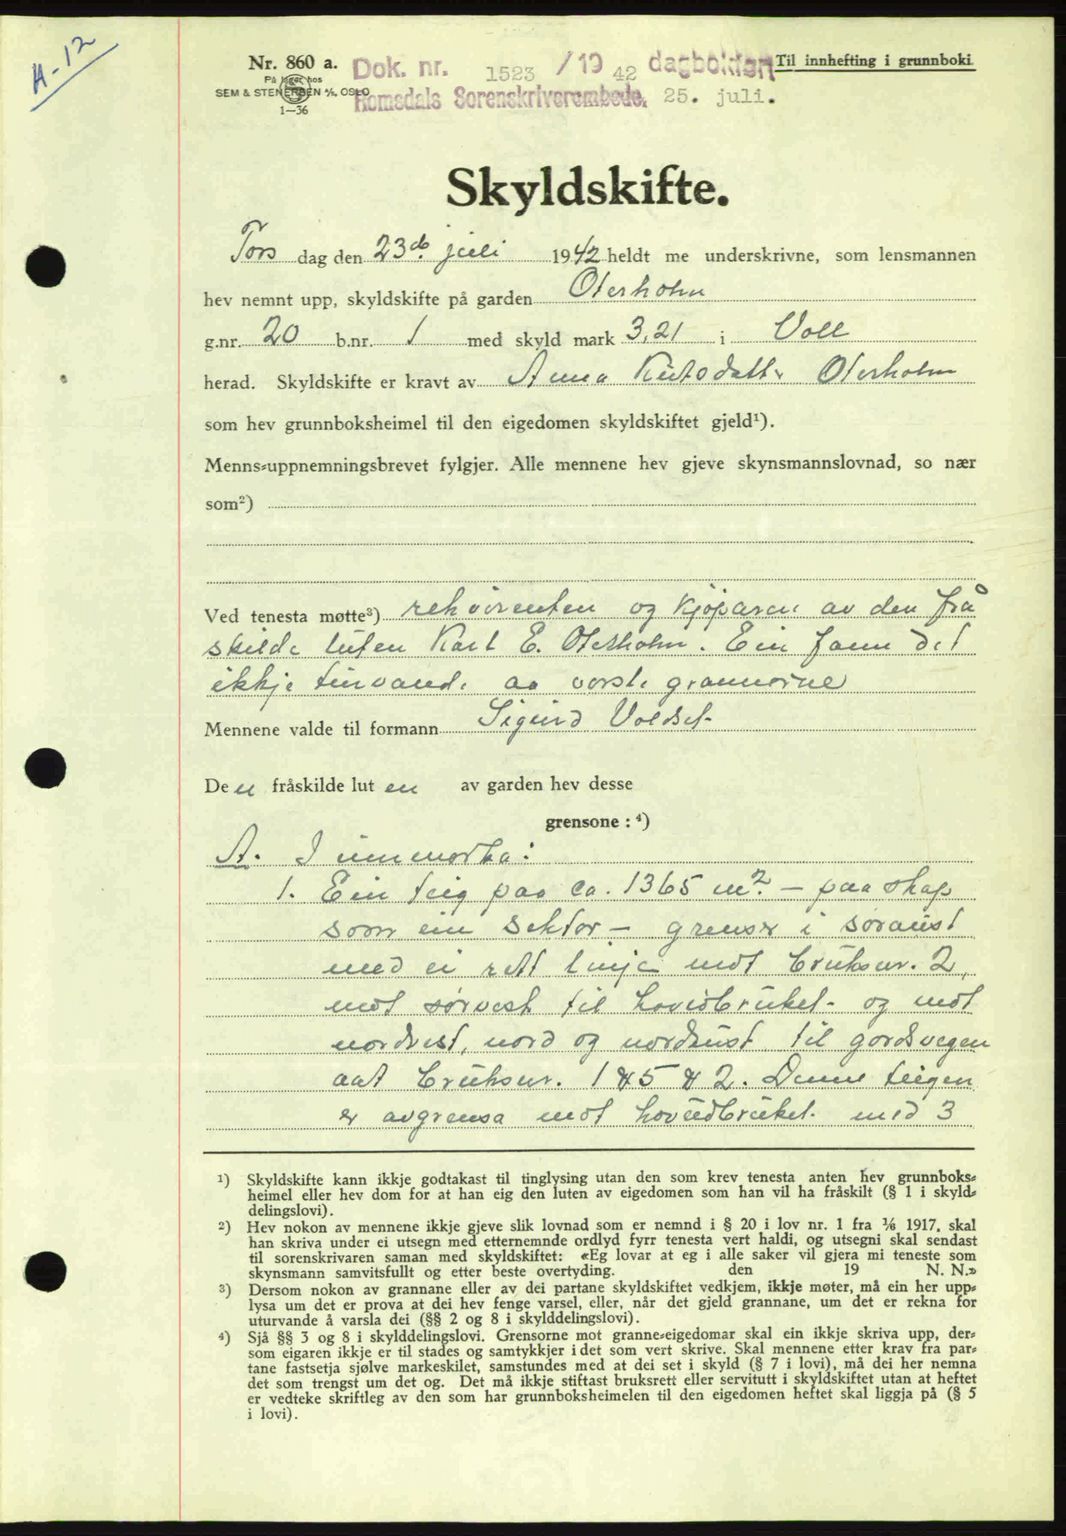 A-12
Nr. 860 a.
På lager hos
SEM & STENERSEN A/S, OSLO
1—36
Dok. nr. 1523 / 1942 dagbokført
Romsdals Sorenskriverembede. 25. juli.
Til innhefting i grunnboki
Skyldskifte.
Tors dag den 23de juli 1942 heldt me underskrivne, som lensmannen
hev nemnt upp, skyldskifte på garden Oterholm
g.nr. 20 b.nr. 1 med skyld mark 3,21 i Voll
herad. Skyldskifte er kravt av Anna Knutsdatter Oterholm
som hev grunnboksheimel til den eigedomen skyldskiftet gjeld¹).
Menns-uppnemningsbrevet fylgjer. Alle mennene hev gjeve skynsmannslovnad, so nær
som²)
Ved tenesta møtte³) rekvirenten og kjøparen av den frå
skilde luten Karl E. Oterholm. Ein fann det
ikkje turvande aa varsle grannorne
Mennene valde til formann Sigurd Voldset
Den fråskilde luten av garden hev desse
grensone : ⁴)
A. I innmorka:
1. Ein teig paa ca. 1365 m² – paa skap
som ein sektor – grensar i søraust
med ei rett linje mot bruksnr. 2,
mot sørvest til hovudbruket og mot
nordvest, nord og nordaust til gardsvegen
aat bruksnr. 1 & 5 & 2. Denne teigen
er avgrensa mot hovudbruket med 3
¹) Skyldskifte kann ikkje godtakast til tinglysing utan den som krev tenesta anten hev grunnboks-
heimel eller hev dom for at han eig den luten av eigedomen som han vil ha fråskilt (§ 1 i skyld-
delingslovi).
²) Hev nokon av mennene ikkje gjeve slik lovnad som er nemnd i § 20 i lov nr. 1 fra ¹/₆ 1917, skal
han skriva under ei utsegn med etternemnde ordlyd fyrr tenesta vert haldi, og utsegni skal sendast
til sorenskrivaren saman med skyldskiftet: «Eg lovar at eg i alle saker vil gjera mi teneste som
skynsmann samvitsfullt og etter beste overtyding. den 19 N. N.»
³) Dersom nokon av grannane eller av dei partane skyldskiftet vedkjem, ikkje møter, må ein her upp-
lysa um det er prova at dei hev fenge varsel, eller, når det gjeld grannane, um det er rekna for
uturvande å varsla dei (§§ 2 og 8 i skylddelingslovi).
⁴) Sjå §§ 3 og 8 i skylddelingslovi. Grensorne mot granne-eigedomar skal ein ikkje skriva upp, der-
som eigaren ikkje er til stades og samtykkjer i det som vert skrive. Skal mennene etter krav fra par-
tane fastsetja sjølve markeskilet, samstundes med at dei set i skyld (§ 7 i lovi), må dei her nemna
det som trengst um det og. Det må ikkje stiftast bruksrett eller servitutt i skyldskiftet utan at heftet
er vedteke skriftleg av den som har grunnboksheimelen til den eigedomen heftet skal liggja på (§ 5
i lovi).